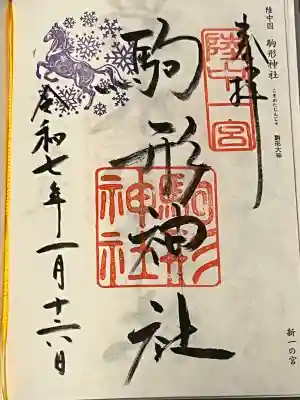 陸中国 駒形神社
こまがたじんじゃ
駒形大神
奉拝
陸中一宮
駒形神社
駒形神社
令和七年一月十六日
新一の宮